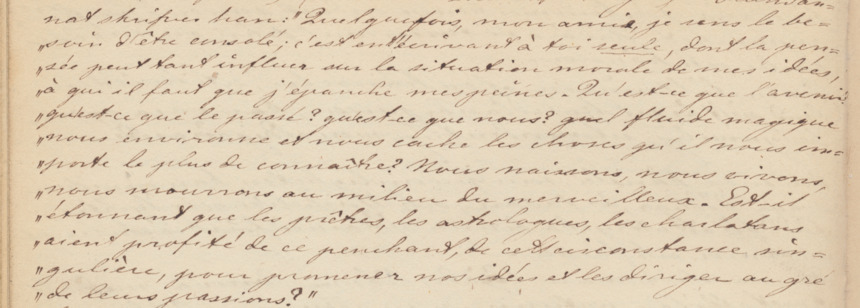 nat skrifver han: "Quelquefois, mon amie, je sens le be=
„soin d'être consolé; c'est en t'écrivant à toi seule, dont la pen=
„sée peut tant influer sur la situation morale de mes idées,
„à qui il faut que j'épanche mes peines. Qu'est-ce que l'avenir?
„qu'est-ce que le passé? qu'est-ce que nous? quel fluide magique
„nous environne et nous cache les choses qu'il nous im=
„porte le plus de connaître? Nous naissons, nous vivons,
„nous mourrons au milieu du merveilleux. Est-il
„étonnant que les prêtres, les astrologues, les charlatans
„aient profité de ce penchant, de cette circonstance sin=
„gulière, pour promener nos idées et les diriger au gré
„de leurs passions?"